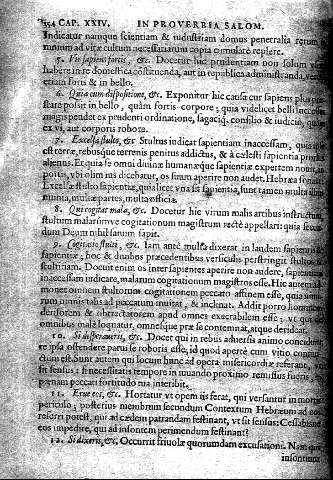 354 CAP. XXIV. IN PROVERBIA SALOM.
Indicatur namque scientiam & industriam domus penetralia rerum
omnium ad vitæ cultum necessariarum copia cumulate replere.
5. Vir sapiens fortis, &c. Docetur hic prudentiam non solum
habere in re domestica constituenda, aut in republica administranda,
etiam fortis & in bello.
6. Quia cum dispositione, &c. Exponitur hic causa cur sapiens plus
stare possit in bello, quàm fortis corpore; quia videlicet belli successus
magis pendet ex prudenti ordinatione, sagaciq; consilio & iudicio, quàm
ex vi, aut corporis robore.
7. Excelsa stulto, &c. Stultus indicat sapientiam inaccessam, quia
est terræ, rebusque terrenis penitus addictus, & à cælesti sapientia
alienus. Et quia se omni diuinæ humanæque sapientiæ expertem nouit,
portis, vbi olim ius dicebatur, os suum aperire non audet. Hebræa
Excelsæ stulto sapientiæ, quia licet vna sit sapientia, sunt tamen multa
munia, multæ partes, multa officia.
8. Qui cogitat mala, &c. Docetur hic virum malis artibus instructum,
stultum malarumve cogitationum magistrum rectè appellari: quia
dum Deum nihil sanum sapit.
9. Cogitatio stulti, &c. Iam antè multa dixerat in laudem sapientis
sapientiæ, hoc & duobus præcedentibus versiculis perstringit stultos, &
stultitiam. Docut enim os inter sapientes aperire non audere, sapientiam
inaccessam indicare, malarum cogitationum magistros esse. Hic autem
monet omnem stultorum cogitationem peccato affinem esse, quia
rum omnis talis ad peccatum inuitat, & inclinat. Addit porro hominem
derisorem & obtrectatorem apud omnes execrabilem esse: vt qui de
omnibus male loquatur, omnesque præ se contemnat, atque derideat.
10. Si desperaueris, &c. Docet qui in rebus aduersis animo concidit
re ipsa ostendere parui se roboris esse, id quod apertè cum vitio
ctum est. Sunt autem qui locum hunc ad opera misericordiæ referant,
sit sensus: si necessitatis tempore in iuuando proximo remissus fueris,
pœnam peccati fortitudo tua interibit.
11. Erue eos, &c. Hortatur vt opem iis ferat, qui versantur in mortis
periculo; posterius membrum secundum Contextum Hebræum ad eos
referri potest, qui ad cædem patrandam festinant, vt sit sensus: Cessabisne
eos impedire, qui ad insontem perimendum festinant?
12. Si dixeris, &c. Occurrit friuolæ quorumdam excusationi. Nam qui
insontium